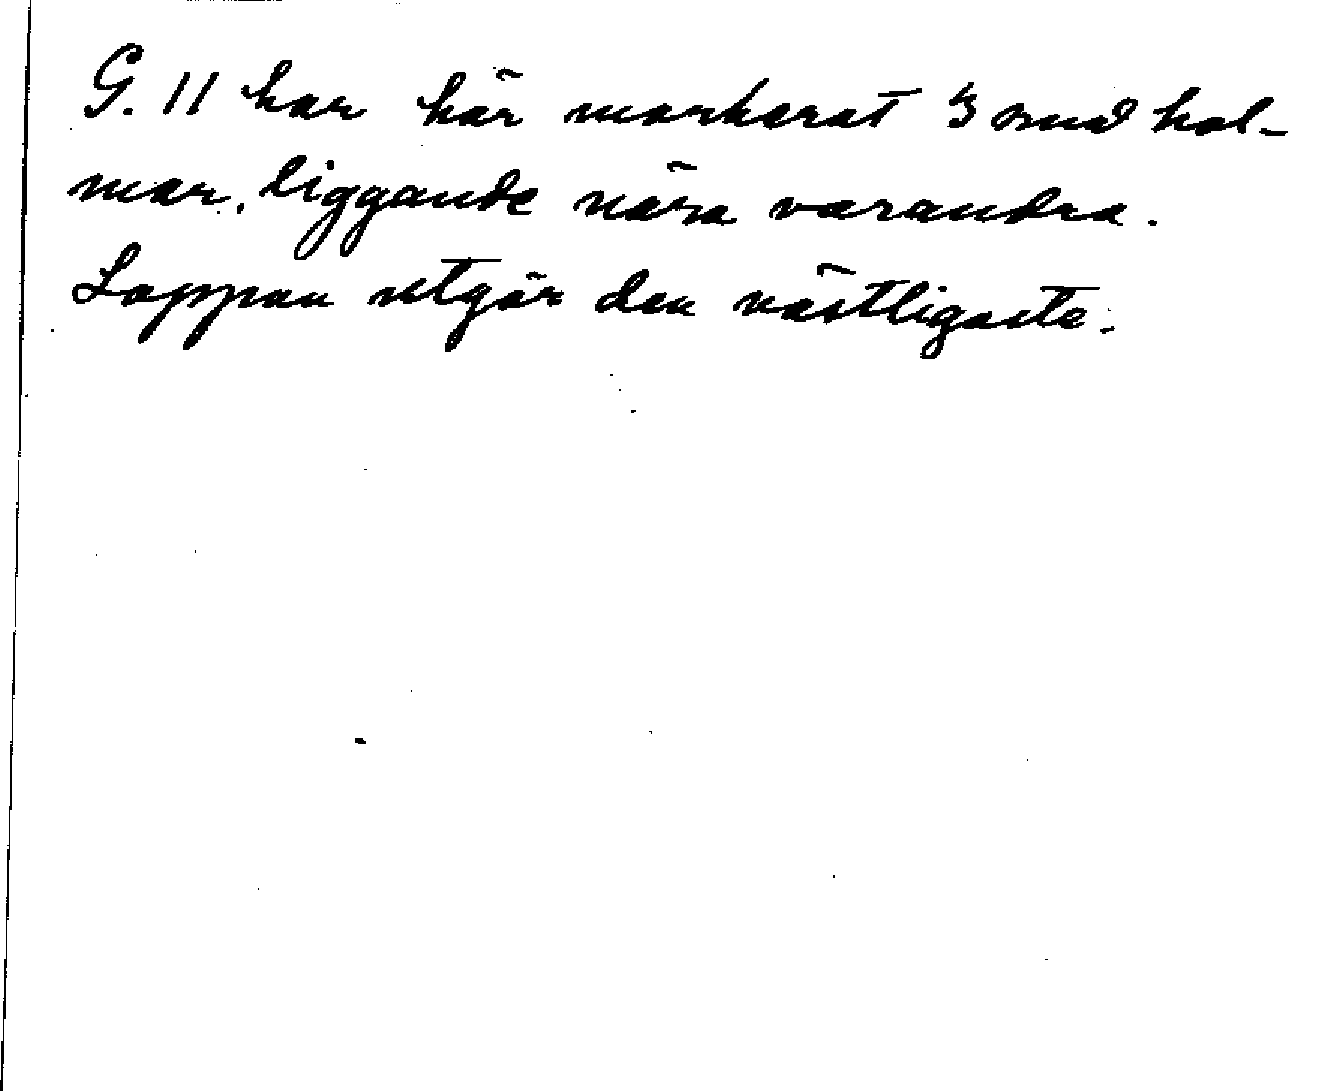 G. 11 har här markerat 3 små hol-
mar, liggande nära varandra.
Loppan utgör den västligaste.